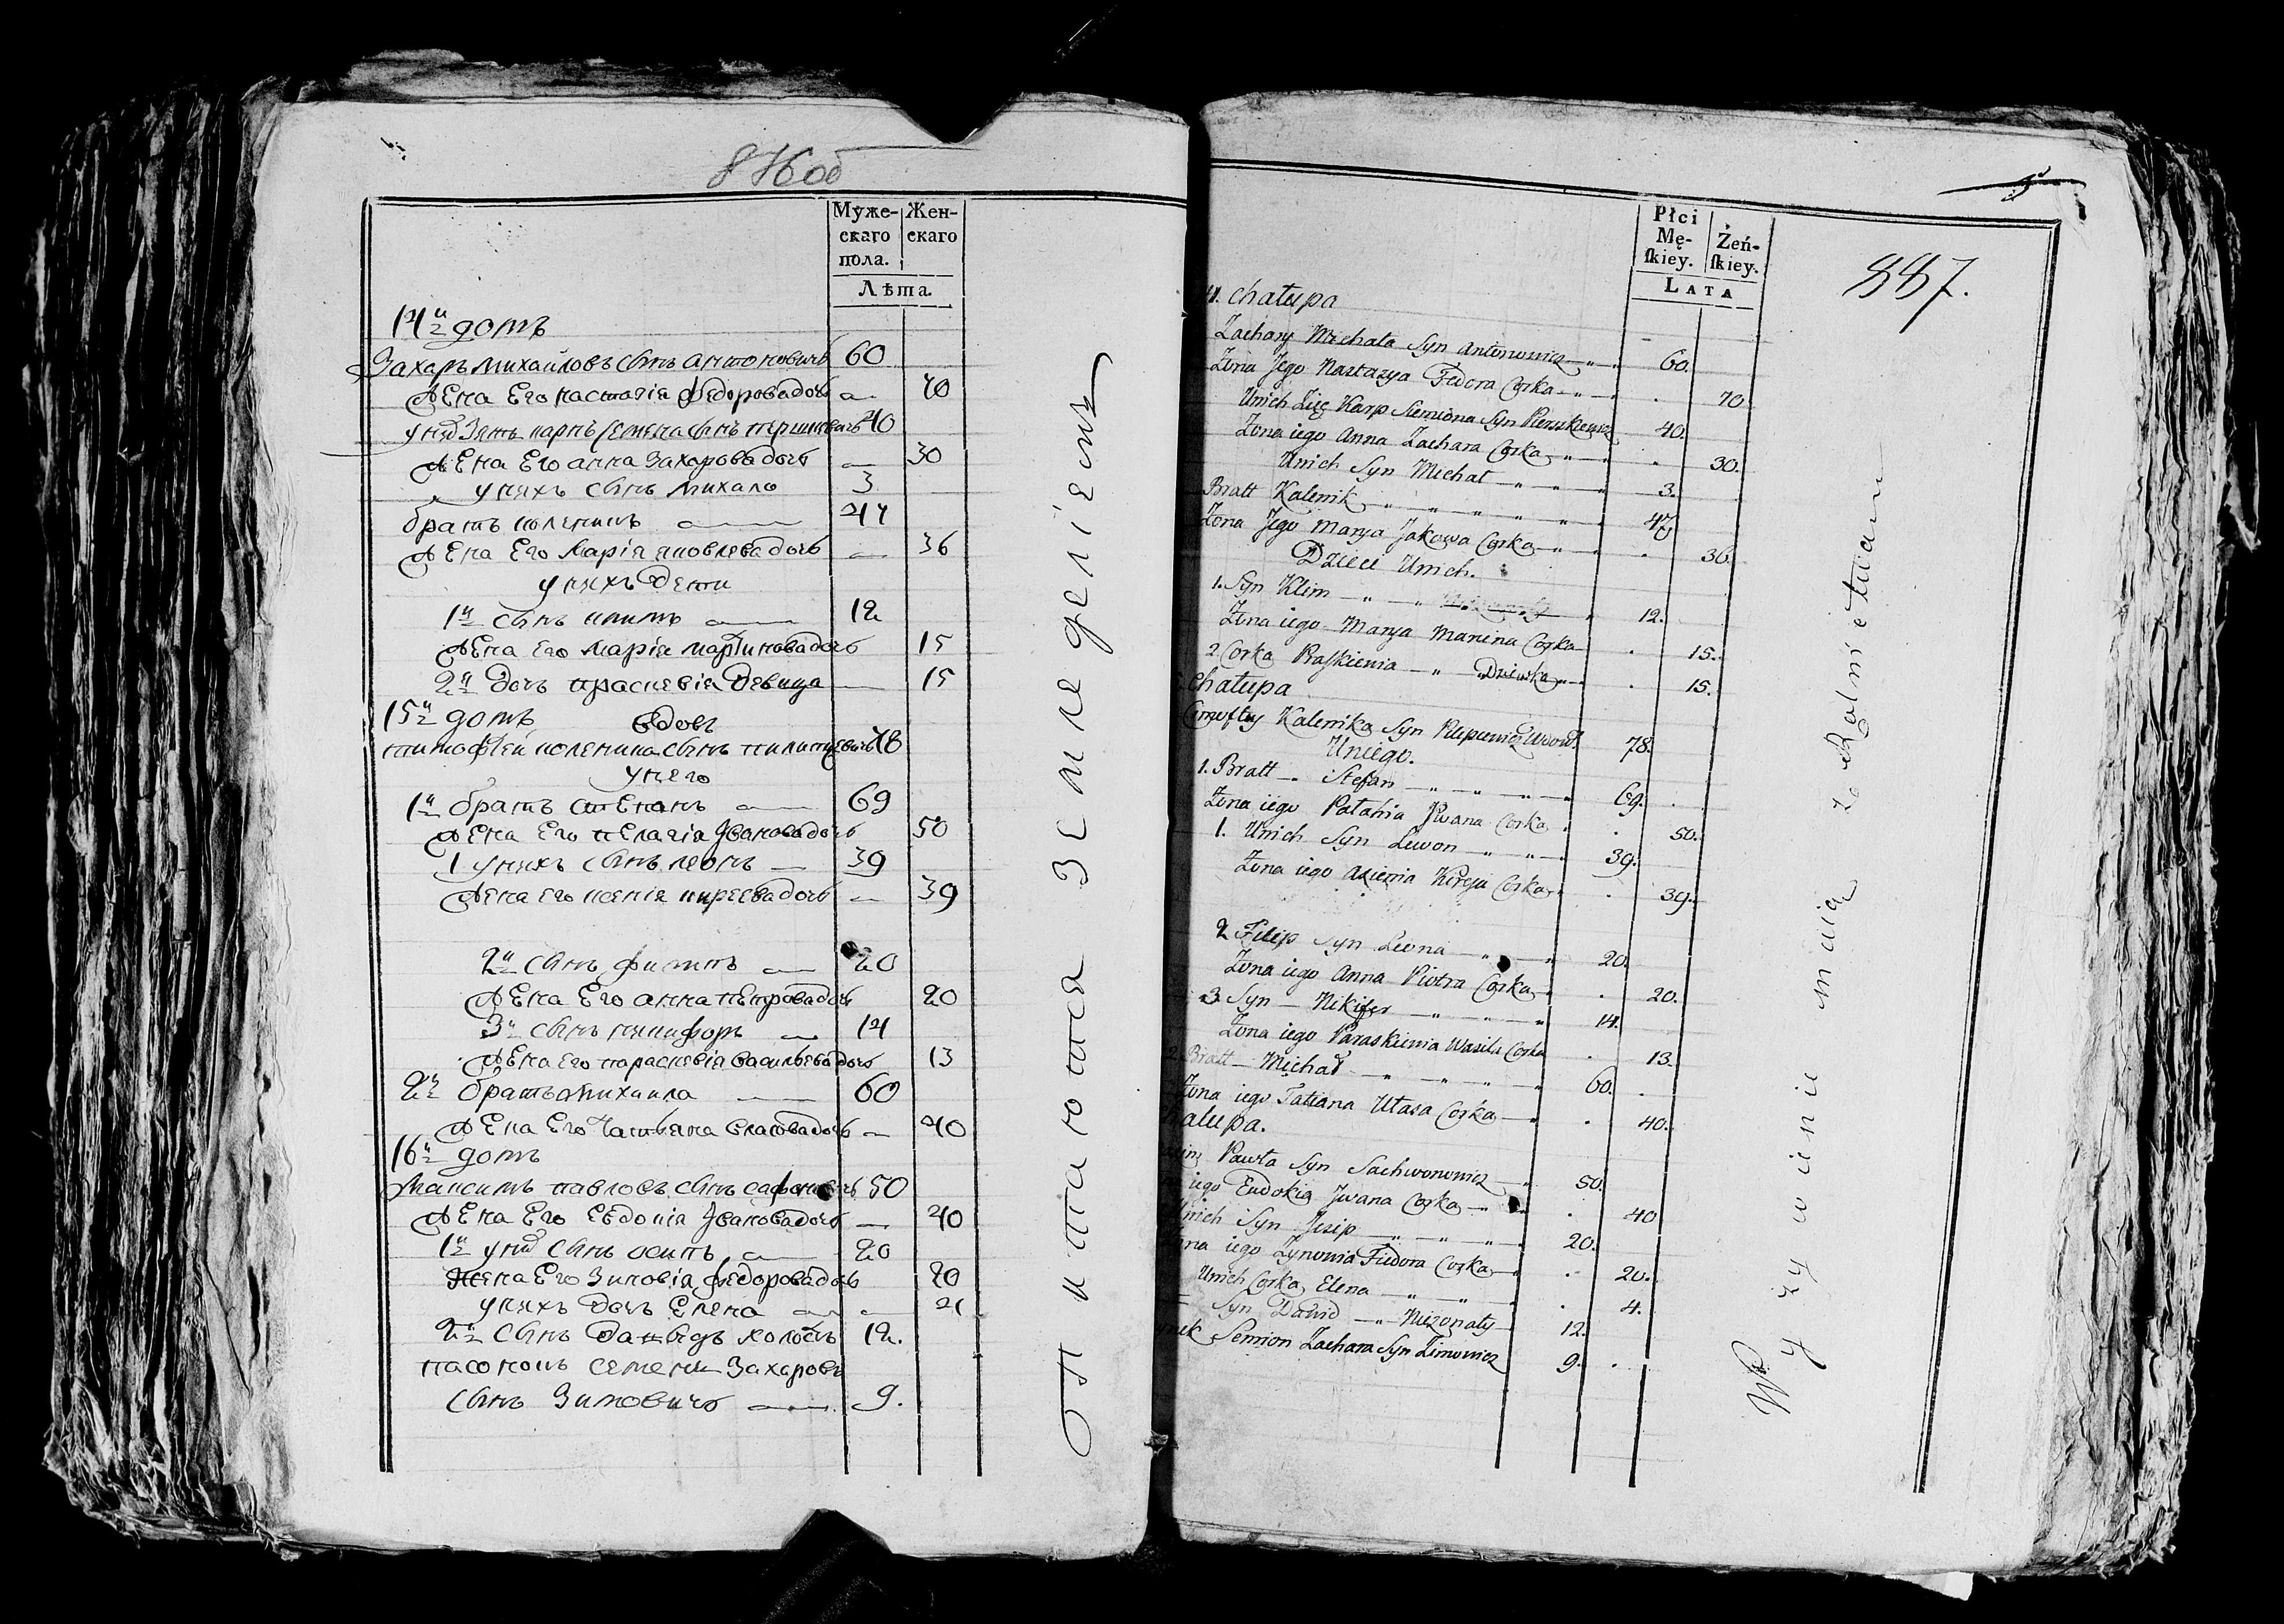 876об
Муже-
скаго
пола.
Жен-
скаго
Лѣта.
14й домъ
Захаръ Михайловъ сынъ Антоновичъ 60
Жена Его Настасія Федорова дочь 70
у них Зять Карпъ Семена сынъ 40
Жена Его Анна Захарова дочь 30
у нихъ сынъ Михало 3
братъКоленикъ 47
Жена Его Марія Яковлева дочь 36
у нихъ дети
1й сынъ Климъ 12
Жена Его Марія Мартинова дочь 15
2я дочь Прасковія девица 15
15й домъ
вдовъ
Тимофей Коленика сынъ Пилипцевичъ 78
у него
1й братъ Степанъ 69
Жена Его Пелагія Іванова дочь 50
1 у нихъ сынъ Леонъ 39
Жена Его Ксенія Киреева дочь 39
2й сынъ Филипъ 20
Жена Его Анна Петрова дочь 20
3й сынъ Никифоръ 14
Жена Его Парасковія Васильева дочь 13
2й братъ Михаила 60
Жена Его Татьяна Власова дочь 40
16й домъ
Максимъ Павловъ сынъ 50
Жена Его Евдокія Іванова дочь 40
1й у них сынъ Осипъ 20
Жена Его Зиновія Федорова дочь 20
у нихъ дочь Елена 4
2й сынъ Давидъ холостъ 12.
пасынокъ Семенъ Захаровъ
сынъ Зимовичъ 9.
Питаются Земледеліемъ
887.
Płci
Mę-
ſkiey.
Żeń-
ſkiey.
LATA
Chałupa
Zachary Michała Syn Antonowicz 60.
Zona Jego Nastazya Fedora Corka 70
Unich Zięć Karp Siemiona Syn 40.
Zona iego Anna Zachara Corka 30.
Unich Syn Michał 3.
Bratt Kalenik 47
Zona Jego Marya Jakowa Corka 36.
Dzieci Unich.
1. Syn Klim 12.
Zona iego Marya Corka 15.
2 Corka Praſkiewia Dziewka 15.
Chałupa
Kalenika Syn 78.
Uniego.
1. Bratt Stefan 69.
Zona iego Pałahia Jwana Corka 50.
1. Unich Syn Lewon 39.
Zona iego Axienia Kireja Corka 39.
2 Filip Syn Leona 20.
Zona iego Anna Piotra Corka 20.
3 Syn Nikifer 14.
Zona iego Paraskiewia Wasila Corka 13.
2. Bratt Michał 60.
Zona iego Tatiana Ułasa Corka 40.
Chałupa.
Pawła Syn Sachwonowicz 50.
iego Eudokia Jwana Corka 40
Unich Syn Jezip 20.
Zona iego Zynowia Fiedora Corka 20.
Unich Corka Elena 4.
Syn Dawid Nieżonaty 12.
Semion Zachara Syn Zimowicz 9.
Wyżywienie maią z Rolnictwa